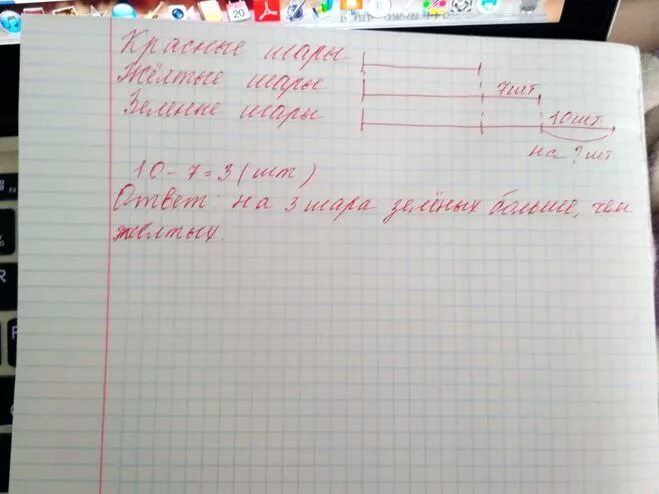 Красные шары
Жёлтые шары
7шт
Зеление шары
10шт
на ? шт
10 - 7 = 3 (шт)
Ответ: на 3 шара зелёных больше, чем
желтых.